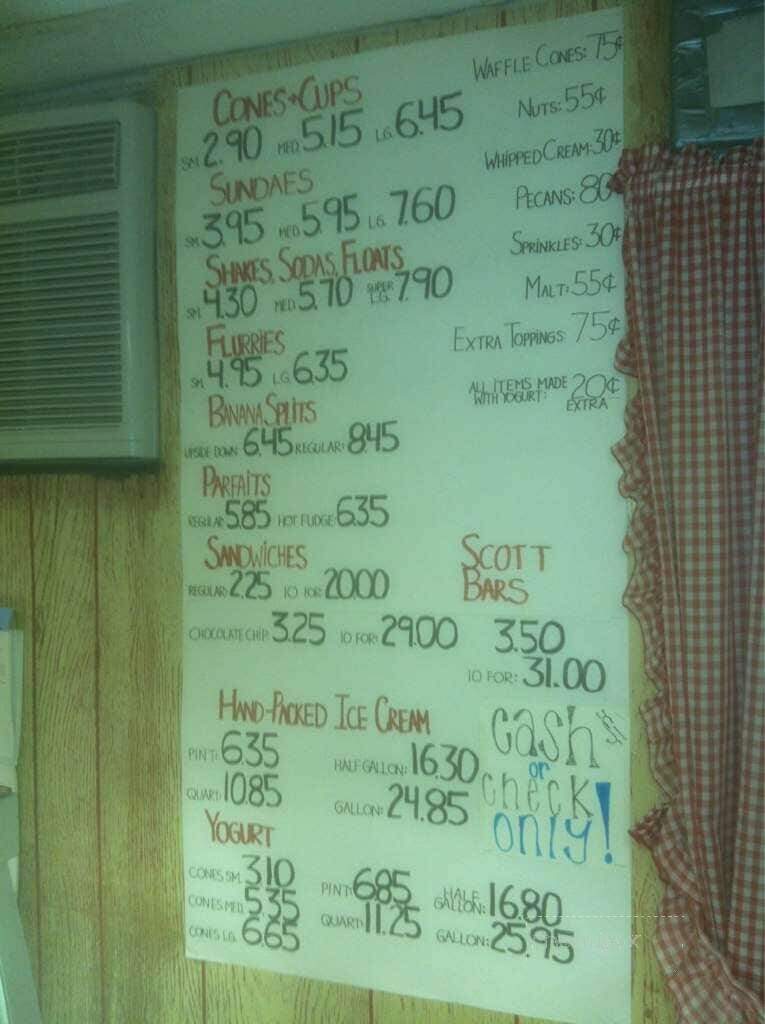 CONES+CUPS
SM. 2.90 MED. 5.15 LG. 6.45
SUNDAES
SM. 3.95 MED. 5.95 LG. 7.60
SHAKES, SODAS, FLOATS
SM. 4.30 MED. 5.70 SUPER LG. 7.90
FLURRIES
SM. 4.95 LG. 6.35
BANANA SPLITS
UPSIDE DOWN: 6.45 REGULAR: 8.45
PARFAITS
REGULAR: 5.85 HOT FUDGE: 6.35
SANDWICHES
REGULAR: 2.25 10 FOR: 20.00
CHOCOLATE CHIP: 3.25 10 FOR: 29.00
WAFFLE CONES: 75¢
NUTS: 55¢
WHIPPED CREAM: 30¢
PECANS: 80¢
SPRINKLES: 30¢
MALT: 55¢
EXTRA TOPPINGS: 75¢
ALL ITEMS MADE
WITH YOGURT: 20¢
EXTRA
SCOTT
BARS
3.50
10 FOR: 31.00
HAND-PACKED ICE CREAM
PINT: 6.35 HALF GALLON: 16.30
QUART: 10.85 GALLON: 24.85
cash
or
check
only!
YOGURT
CONES SM. 3.10 PINT: 6.85 HALF GALLON: 16.80
CONES MED. 5.35 QUART: 11.25 GALLON: 25.95
CONES LG. 6.65